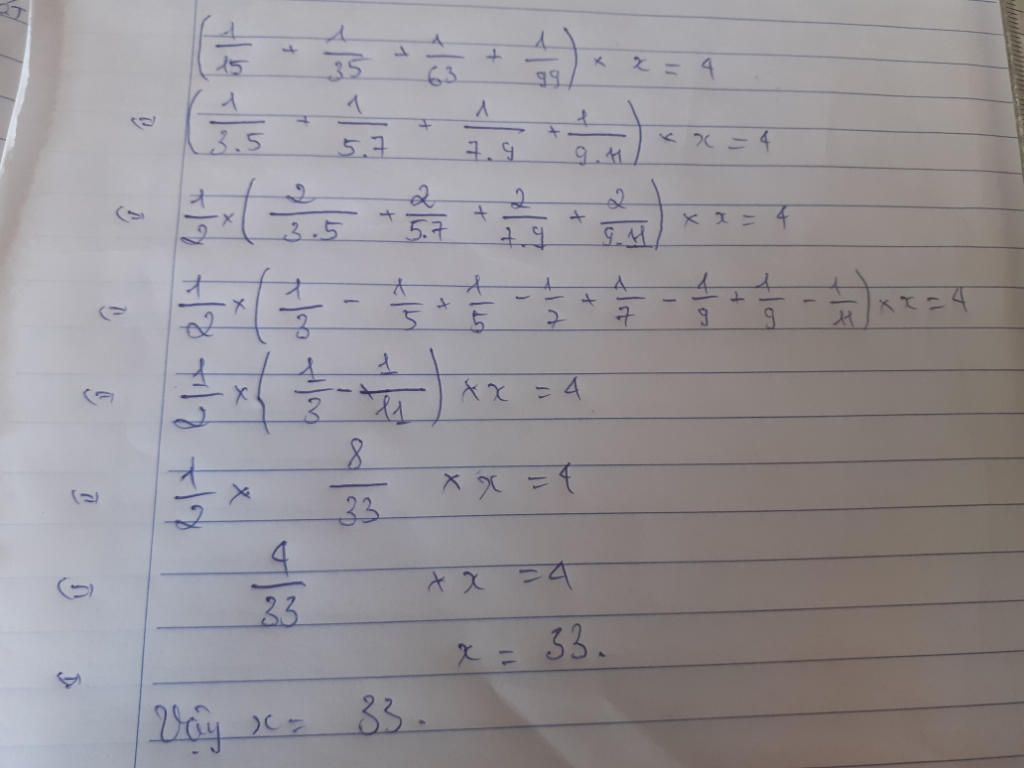 (1/15 + 1/35 + 1/63 + 1/99) × x = 4
(1/3.5 + 1/5.7 + 1/7.9 + 1/9.11) × x = 4
1/2 × (2/3.5 + 2/5.7 + 2/7.9 + 2/9.11) × x = 4
1/2 × (1/3 - 1/5 + 1/5 - 1/7 + 1/7 - 1/9 + 1/9 - 1/11) × x = 4
1/2 × (1/3 - 1/11) × x = 4
1/2 × 8/33 × x = 4
4/33 × x = 4
x = 33.
Vậy x = 33.